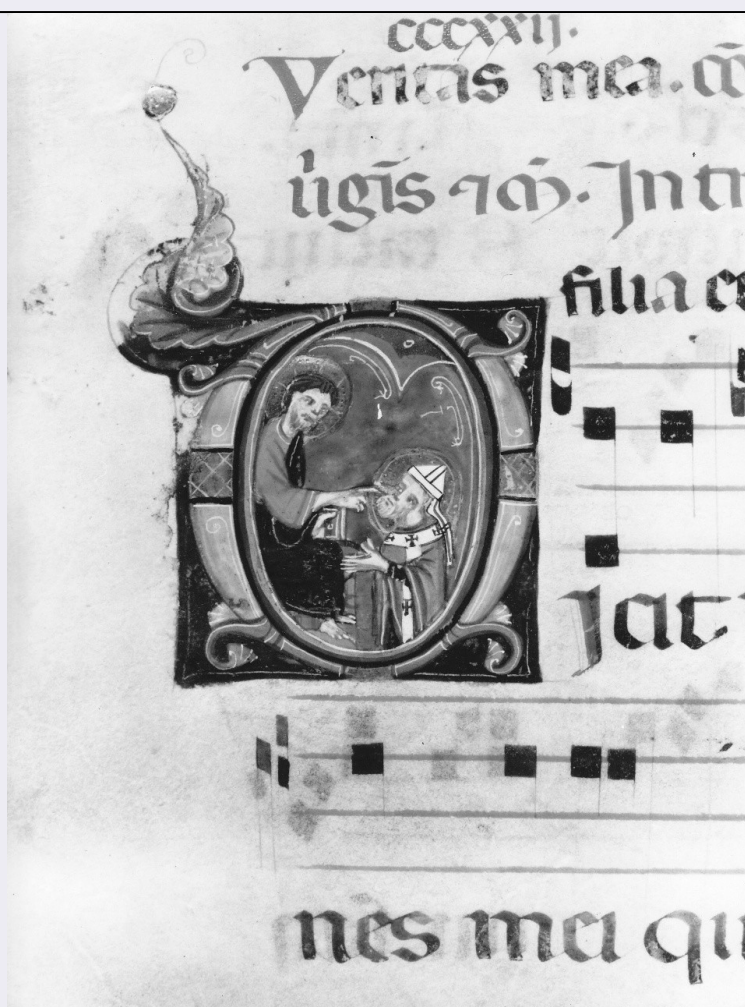 cccxxij.
Veritas mea. cō
uigīs ⁊ cm̄. Intr
filia ce
iat
nes mei qu